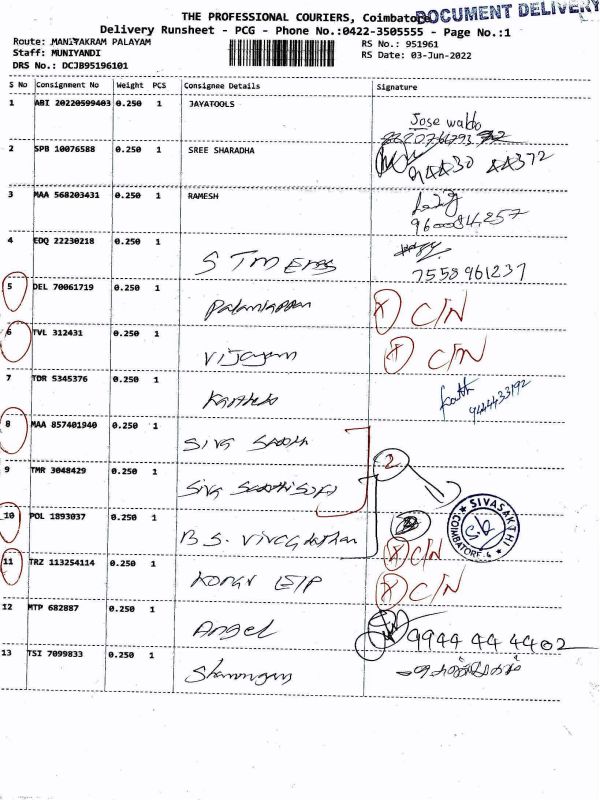 THE PROFESSIONAL COURIERS, Coimbatore
DOCUMENT DELIVERY
Delivery Runsheet - PCG - Phone No.:0422-3505555 - Page No.:1
Route: MANIYAKRAM PALAYAM
RS No.: 951961
Staff: MUNIYANDI
RS Date: 03-Jun-2022
DRS No.: DCJB95196101
S No Consignment No Weight PCS Consignee Details Signature
1 ABI 20220599403 0.250 1 JAYATOOLS
Jose waldo
2 SPB 10076588 0.250 1 SREE SHARADHA
3 MAA 568203431 0.250 1 RAMESH
4 EDQ 22230218 0.250 1 STM
7558961237
5 DEL 70061719 0.250 1 Palaniappan X C/N
6 TVL 312431 0.250 1 Vijayam X C/N
7 TDR 5345376 0.250 1
9444433192
8 MAA 857401940 0.250 1 Siva
9 TMR 3048429 0.250 1 Siva
2
10 POL 1893037 0.250 1 B.S.
X C/N
SIVASAKTHI
COIMBATORE-6
11 TRZ 113254114 0.250 1 X C/N
12 MTP 682887 0.250 1 Angel 9944 44 4402
13 TSI 7099833 0.250 1